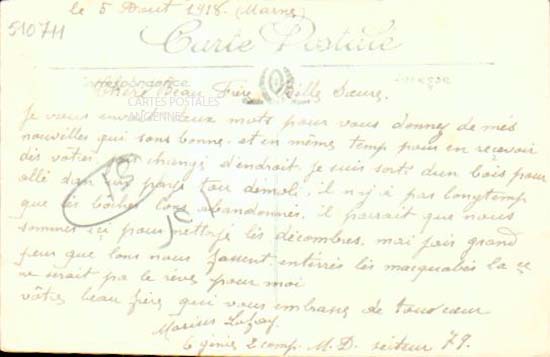 le 5 Aout 1918. (Marne)
510711
Carte Postale
Correspondance
Chère Beau Frère Bille Soeure.
CARTES POSTALES
ANCIENNES
Je vous envoi deux mots pour vous donnez de més
nouvelles qui sons bonne. et en même temp pour en reçevoir
dés vôtres changé d'endroit. je suis sorti d'un bois pour
allé dan un pays tou demoli. il n'y a pas longtemp
que lés bôches lons abandonnés. il parait que nous
sommes ici pour nettoyé lés décombres. mai jais grand
peur que lons nous fassent enterrés lés macquabés la ce
ne serait pa le rêve pour moi
vôtre beau frère qui vous embrasse de tous coeur
19
151
Marius
6 génie 2 comp. M.D. secteur 79.